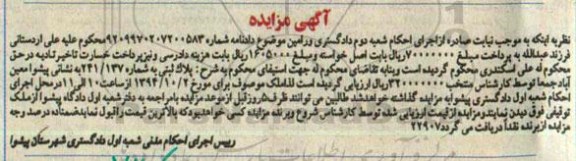 آگهی مزایده
نظر به اینکه به موجب نیابت صادره از اجرای احکام شعبه دوم دادگستری ورامین موضوع دادنامه شماره ۹۲۰۹۹۷۰۲۰۷۲۰۰۵۸۳ محکوم علیه علی اردستانی
فرزند عبدالله به پرداخت مبلغ ۷۰۰۰۰۰۰۰ ریال بابت اصل خواسته و مبلغ ۱۶۰۵۰۰۰ ریال بابت هزینه دادرسی و نیز پرداخت خسارت تاخیر تادیه در حق
محکوم له علی اسکندری محکوم گردیده است و بنا به تقاضای محکوم له جهت استیفای محکوم به شرح: پلاک ثبتی به شماره ۲۴۱/۱۳۷ به نشانی پیشوا معین
آباد جمعا توسط کارشناس منتخب ۳۲۰۰۰۰۰۰۰ ریال ارزیابی گردیده است لذا ملک موصوف برای مورخ ۱۳۹۴/۱۰/۲ از ساعت ۱۰ الی ۱۱ در محل اجرای
احکام شعبه اول دادگستری پیشوا به مزایده گذاشته خواهد شد طالبین می توانند ظرف پنج روز قبل از موعد مزایده با مراجعه به دفتر شعبه اول دادگاه پیشوا از ملک
توقیفی فوق دیدن نمایند و مزایده از قیمت ارزیابی شده توسط کارشناس شروع و برنده مزایده کسی خواهد بود که بالاترین قیمت را قبول نماید ضمنا ده درصد وجه
مزایده از برنده نقدا دریافت می گردد ۲۲۹۰۷
رییس اجرای احکام مدنی شعبه اول دادگستری شهرستان پیشوا